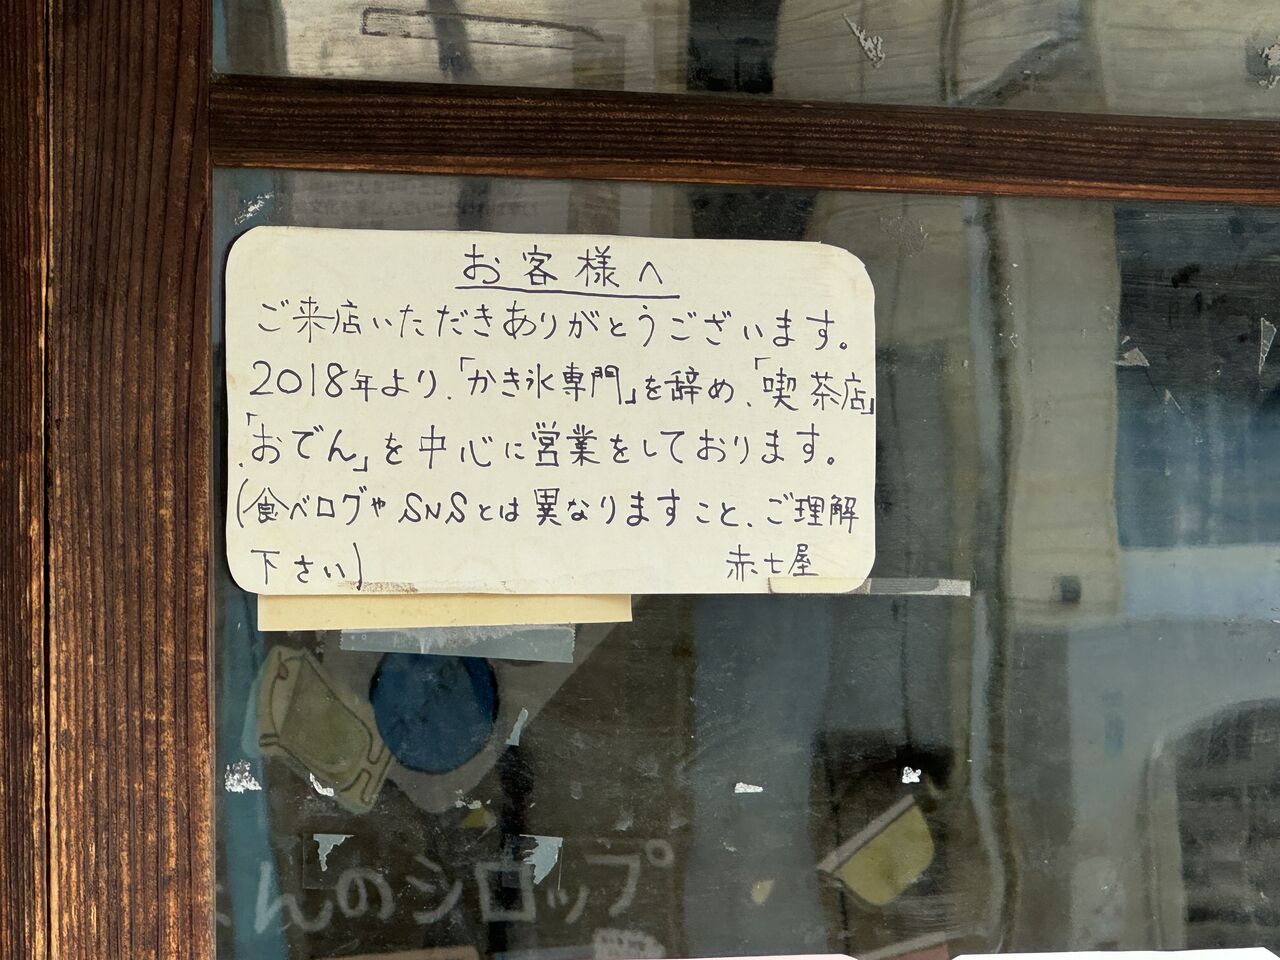 お客様へ
ご来店いただきありがとうございます。
2018年より、「かき氷専門」を辞め、「喫茶店」
、「おでん」を中心に営業をしております。
(食べログやSNSとは異なりますこと、ご理解
下さい)
赤七屋
んのシロップ